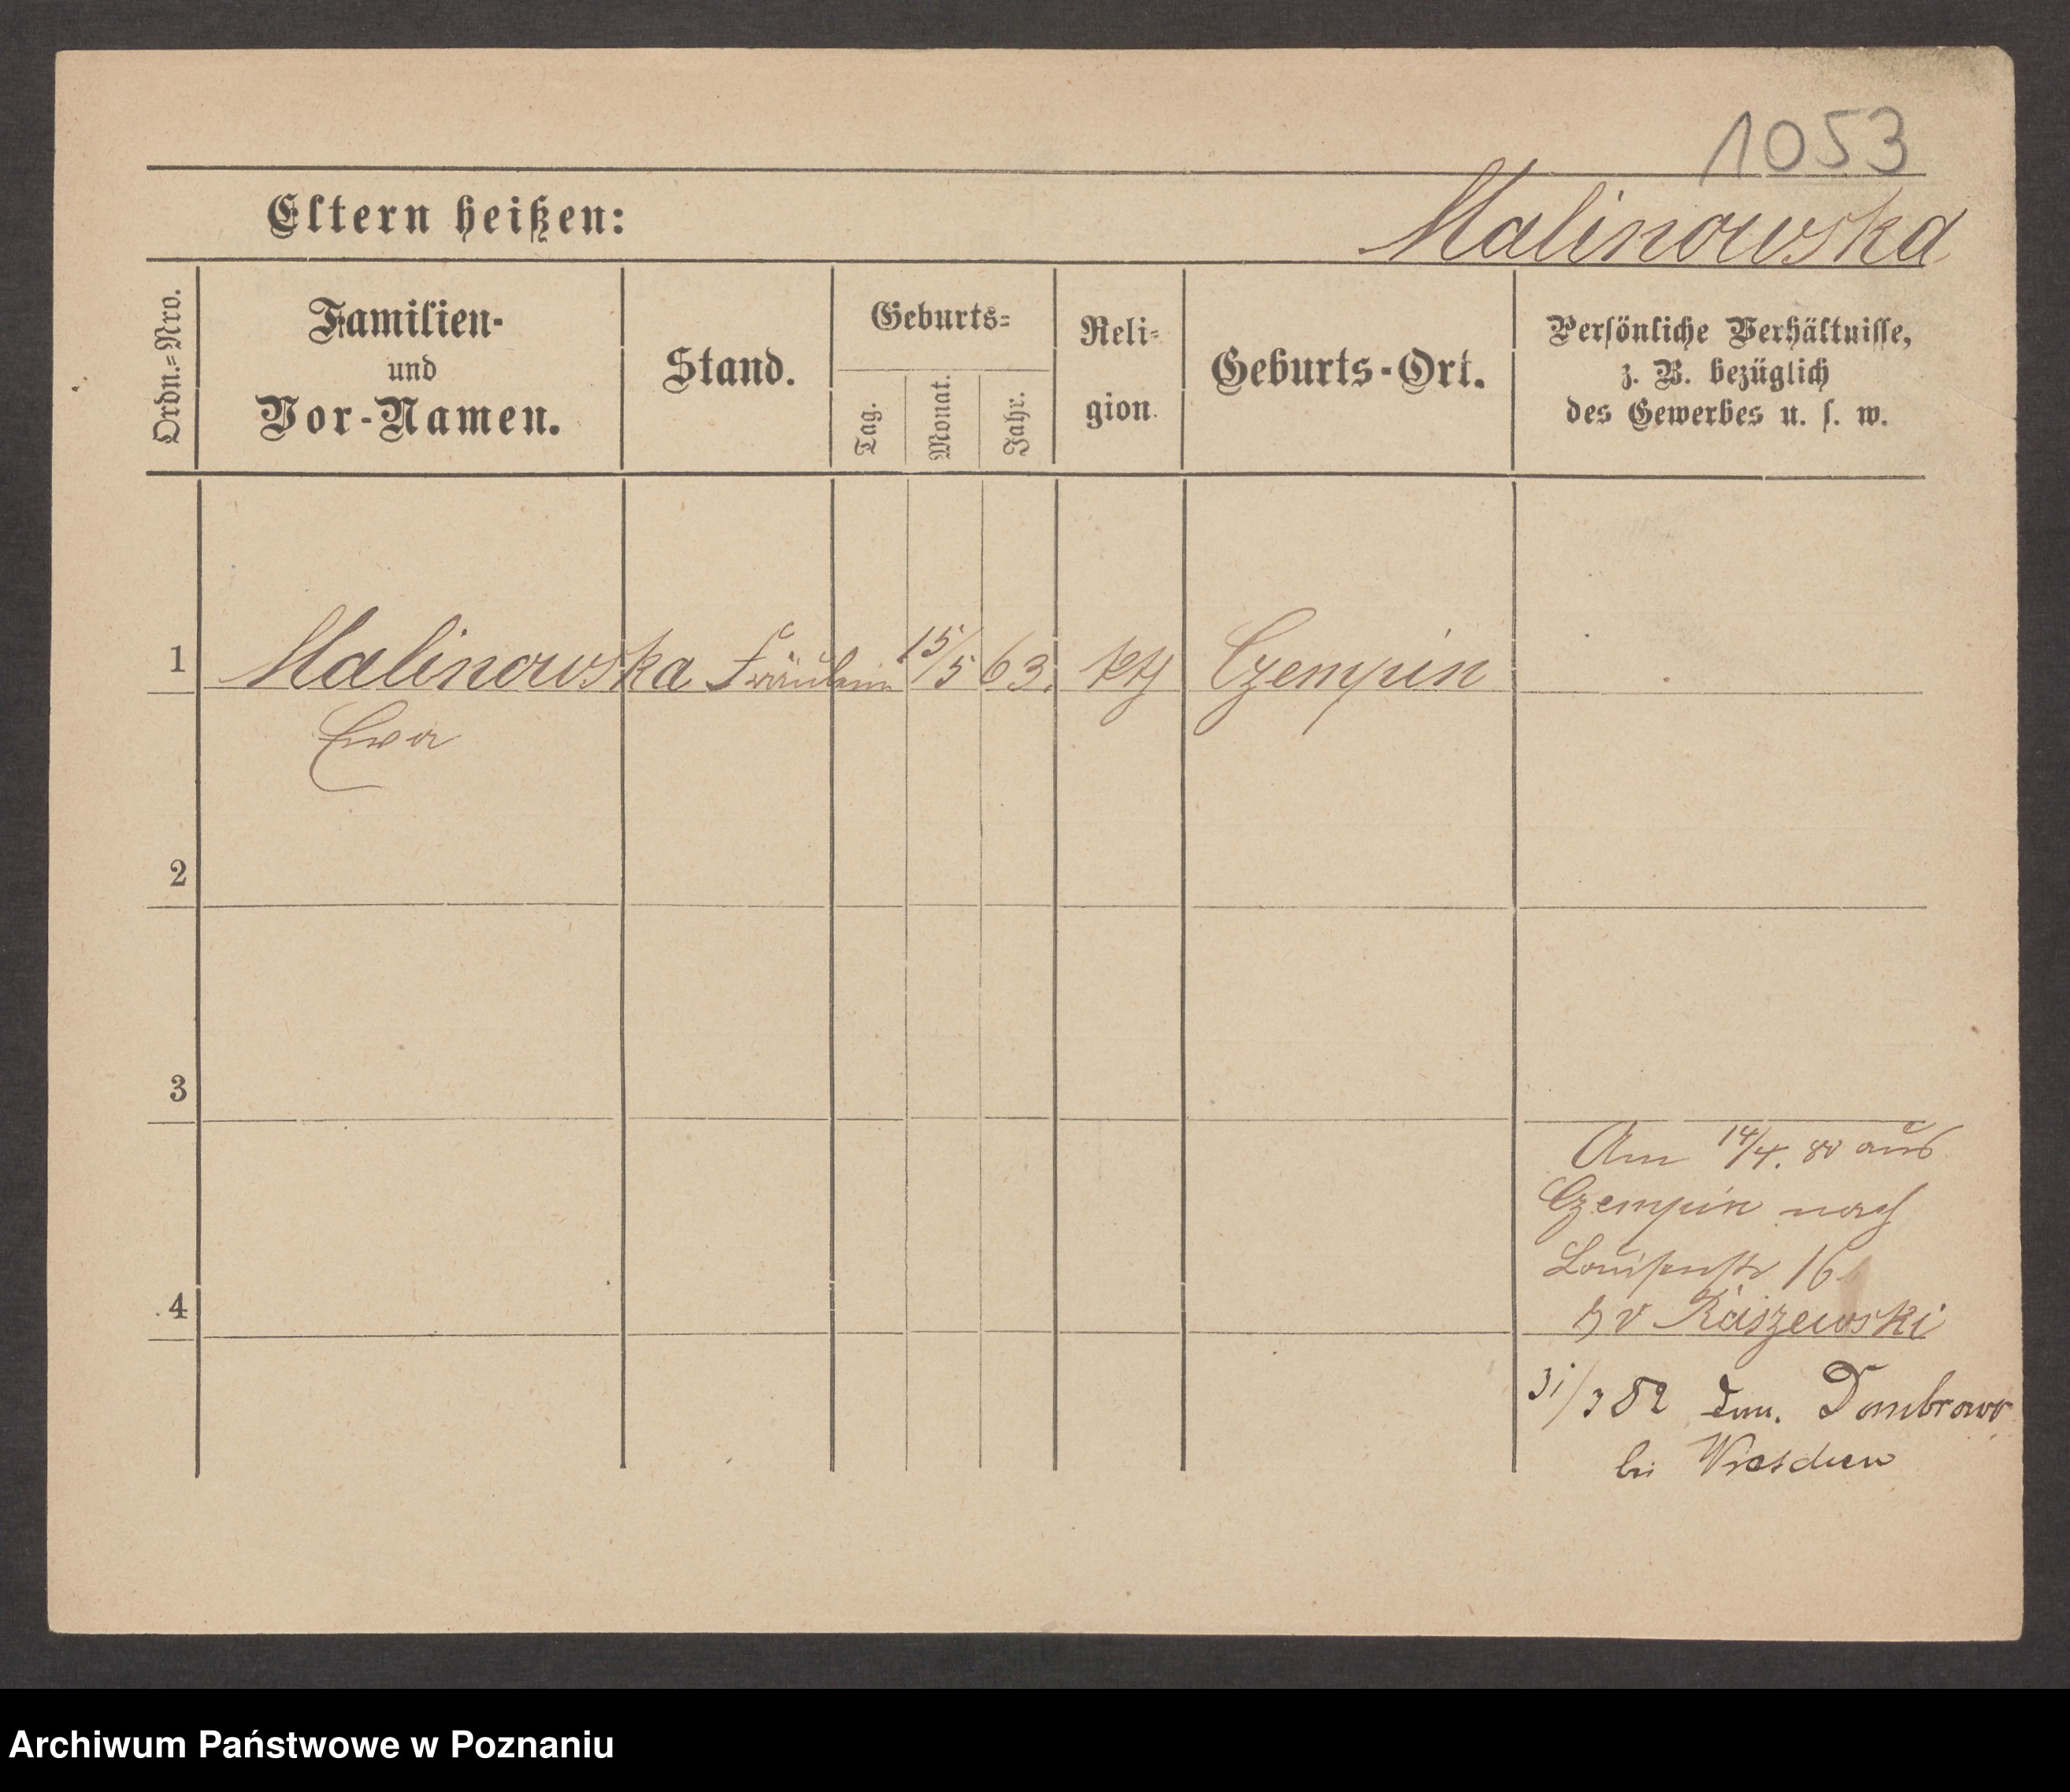 1053
Eltern heißen:
Malinowska
Ordn.=Nro.
Familien-
und
Vor-Namen.
Stand.
Geburts=
Tag.
Monat.
Jahr.
Reli=
gion
Geburts-Ort.
Persönliche Verhältnisse,
z. B. bezüglich
des Gewerbes u. s. w.
1 Malinowska Fräulein 15/5 63. kth Czempin
Ewa
2
3
Am 14/4. 80 aus
Czempin nach
Louisenstr 16
4
b v Raszewski
31/3 82 Dom. Dombrowo
bei Wreschen
Archiwum Państwowe w Poznaniu